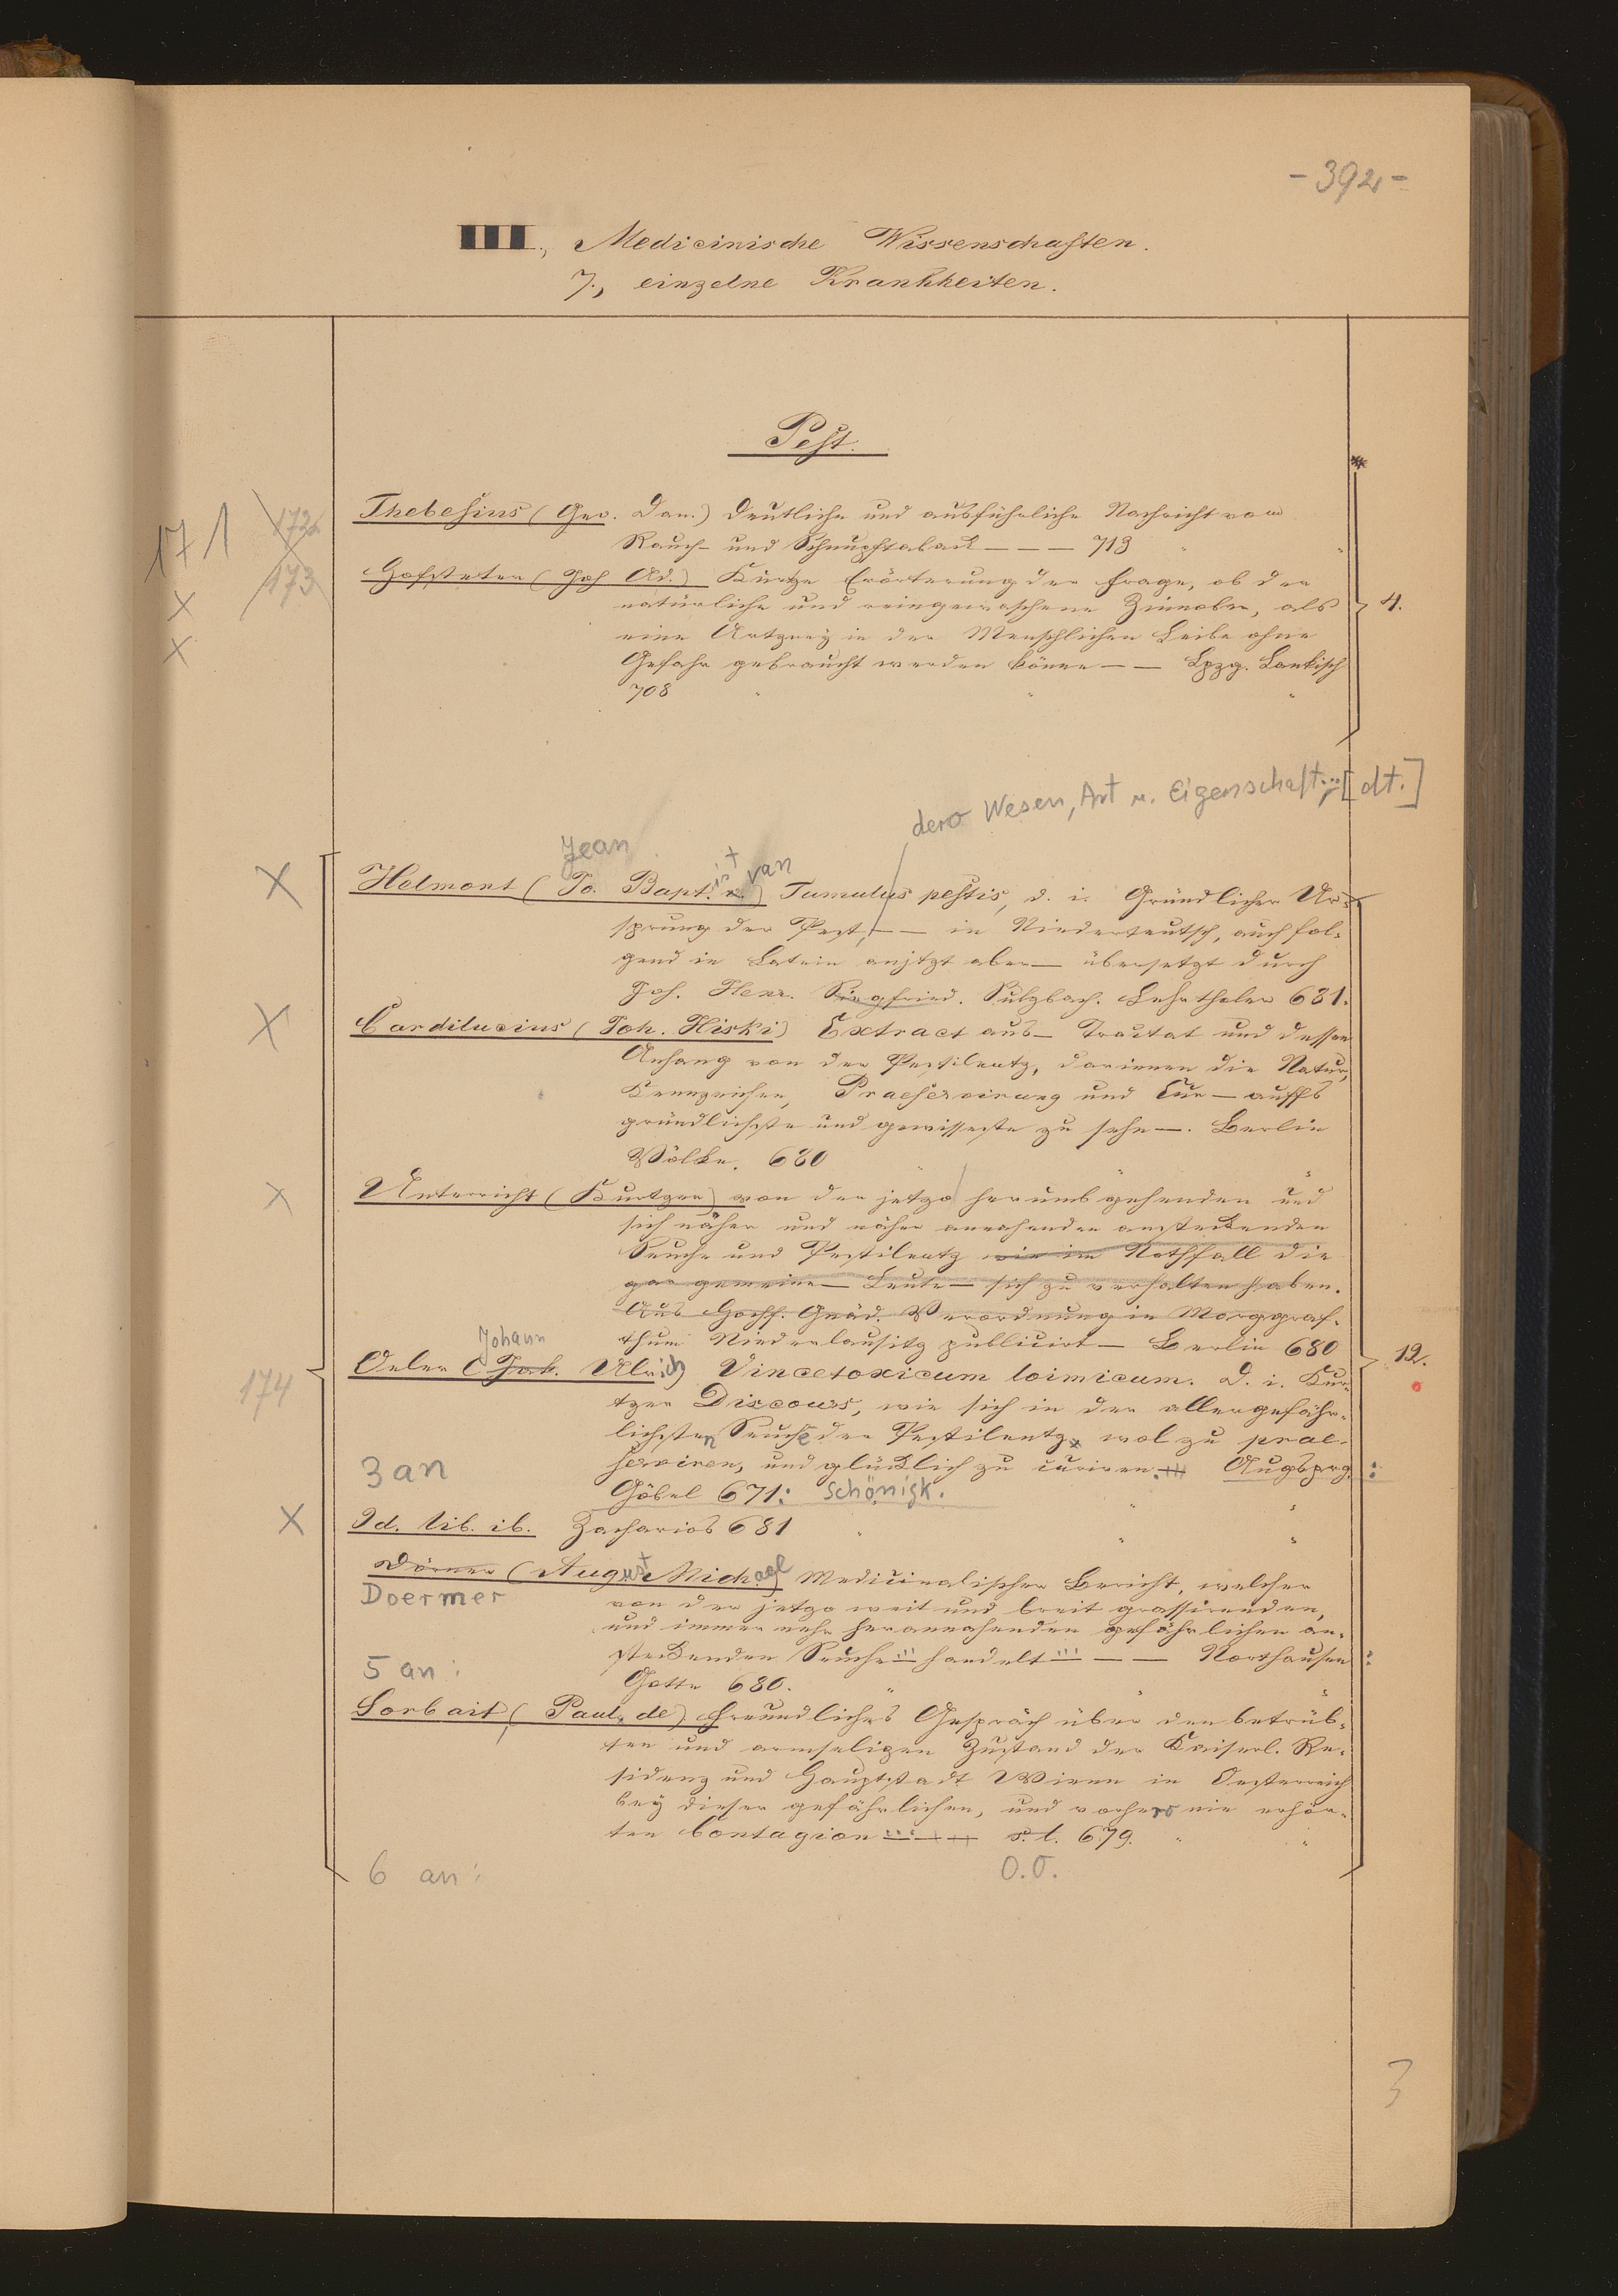 - 392 -
III., Medicinische Wissenschaften.
7., einzelne Krankheiten.
Pest.
171
172
173
174
Thebesius (Geo. Dan.) Deutliche und ausführliche Nachricht vom
Rauch- und Schnupftaback — — — 713 "
Hofsteter (Joh Ad.) Kurtze Erörterung der Frage, ob der
natürliche und reingewaschene Zinnober, als
eine Artzney in den Menschlichen Leibe ohne
Gefahr gebraucht werden könne — — Lpzg. Lankisch
708 " " "
4.
dero Wesen, Art u. Eigenschaft...[dt.]
Jean ist van
Helmont (Jo. Bapt. v.) Tumulus pestis, d. i. Gründlicher Ur-
sprung der Pest, — — in Niederteutsch, auch fol-
gend in Latein anjtzt aber — übersetzt durch
Joh. Henr. Siegfried. Sulzbach. 681.
Cardilucius (Joh. Hiski) Extract aus — Tractat und dessen
Anhang von der Pestilentz, darinnen die Natur,
Kennzeichen, Praeservirung und Cur — auffs
gründlichste und gewisseste zu sehn —. Berlin
Völke. 680 " " "
Unterricht (Kurtzer) von der jetzo herumb gehenden und
sich näher und näher annahenden ansteckenden
Seuche und Pestilentz wie im Nothfall die
gar gemeine — Leute — sich zu verhalten haben.
Aus Hochf. Gnäd. Verordnung in Marggraf-
thum Niederlausitz publicirt — Berlin 680
Johann
Oeler (Joh. Ulrich) Vincetoxicum loimicum. D. i. Kur-
tzer Discours, wie sich in der allergefähr-
lichsten Seuche der Pestilentz, wol zu prae-
serviren, und glücklich zu curiren. Augsprg. :
3 an
Göbel 671: Schönigk. " "
Id. lib. ib. Zacharias 681 " " "
Dörmer (August Michael) Medicinalischer Bericht, welcher
Doermer
von der jetzo weit und breit grassirenden,
und immer mehr herannahenden gefährlichen an-
steckenden Seuche ... handelt ... — — Northausen :
5 an:
680. " " "
Sorbait (Paul, de) Freundliches Gespräch über den betrüb-
ten und armseligen Zustand der Kaiserl. Re-
sidenz und Hauptstadt Wienn in Oesterreich
bey dieser gefährlichen, und vorhero nie erhör-
ten Contagion ... — s. l. 679. " "
6 an: O.O.
12.
3